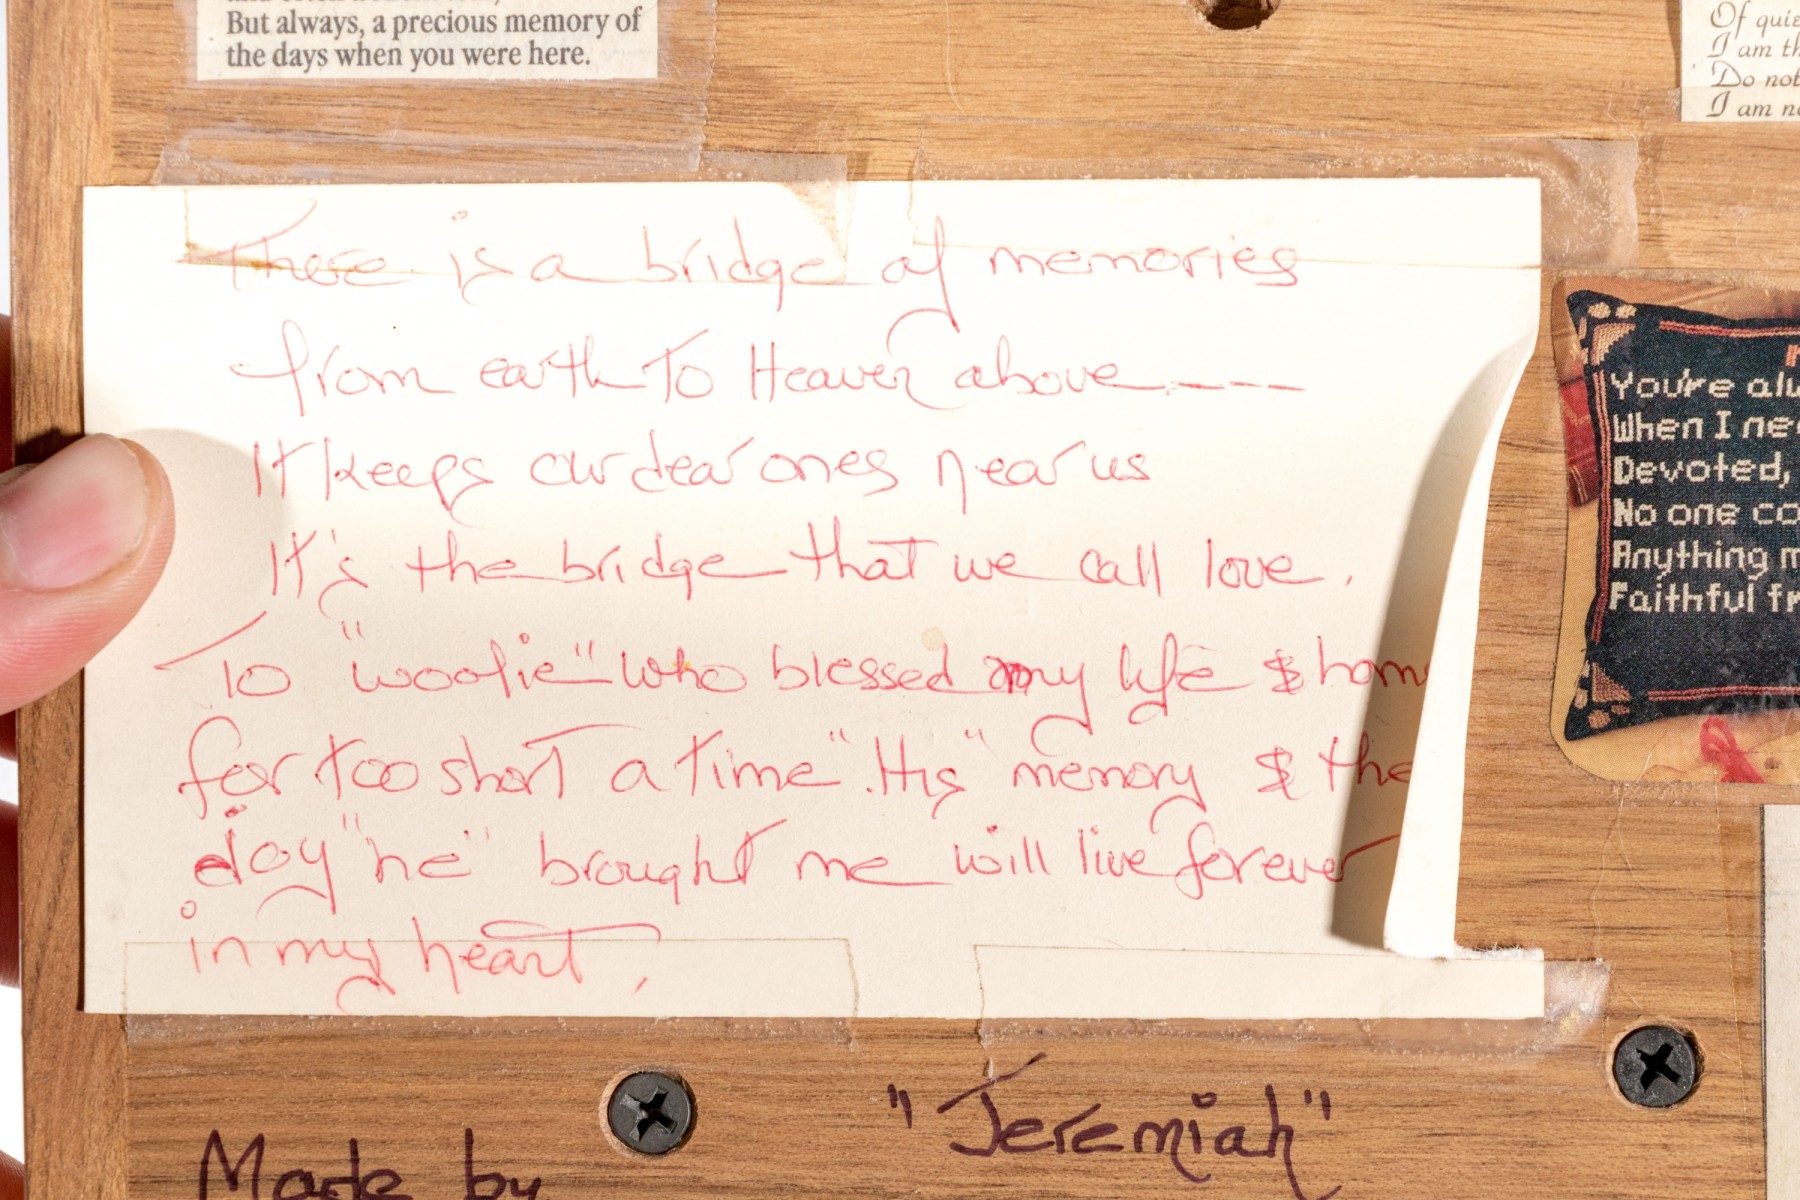 But always, a precious memory of
the days when you were here.
Of quie
I am th
Do not
I am no
There is a bridge of memories
from earth To Heaven above----
It keeps our dear ones near us
It's the bridge that we call love.
To "woofie" who blessed my life & hom
for too short a time". "His" memory & the
joy "he" brought me will live forever
in my heart.
You're alw
When I nee
Devoted,
No one co
Anything m
Faithful fr
"Jeremiah"
Made by